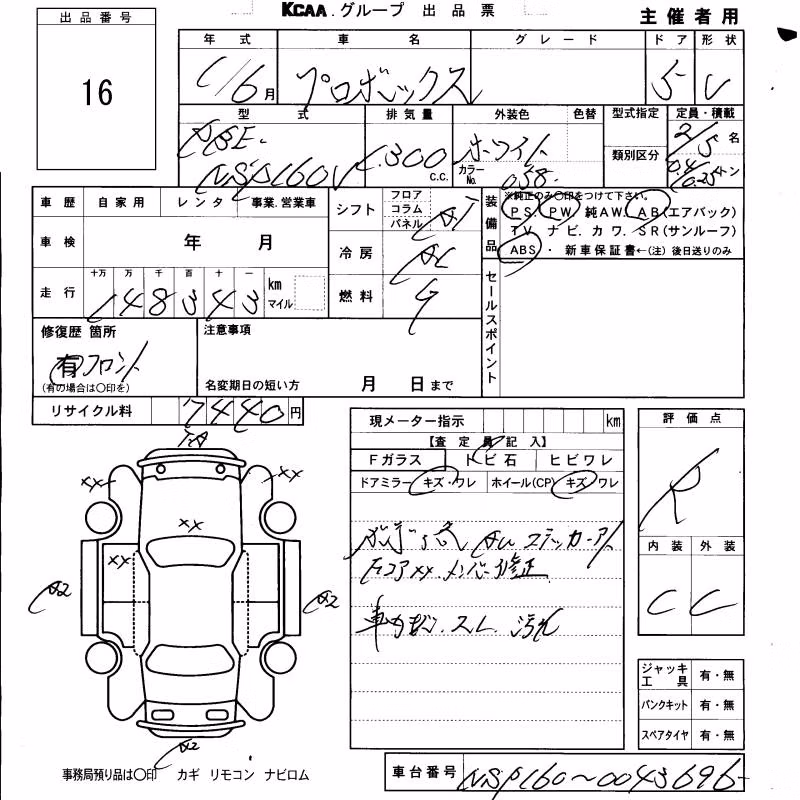 KCAA.グループ 出品票
主催者用
出品番号
16
年式 車名 グレード ドア 形状
/6月 プロボックス 5 V
型式 排気量 外装色 色替 型式指定 定員・積載
DBE- NSP160V 1,300 C.C. ホワイト カラーNo. 058 類別区分 2/5名 0.4/0.25トン
車歴 自家用 レンタ 事業、営業車
シフト フロア コラム パネル AT
装備品 ※純正のみ○印をつけて下さい。
PS. PW. 純AW. AB(エアバック)
TV ナビ. カワ. SR(サンルーフ)
ABS ・ 新車保証書←(注) 後日送りのみ
車検 年 月
冷房 AC
走行 十万 万 千 百 十 一
148343 km マイル
燃料 G
セールスポイント
修復歴 箇所
有 フロント
(有の場合は○印を)
注意事項
名変期日の短い方 月 日まで
リサイクル料 7440円
現メーター指示 km
【査定員記入】
Fガラス トビ石 ヒビワレ
ドアミラー キズ・ワレ ホイール(CP) キズ ワレ
評価点
R
内装 外装
C C
XX XX
XX
XX
A2 A2
A2
ステッカーアト
FコアXX メンバー修正
スレ 汚れ
ジャッキ工具 有・無
パンクキット 有・無
スペアタイヤ 有・無
事務局預り品は○印 カギ リモコン ナビロム
車台番号 NSP160～0043696